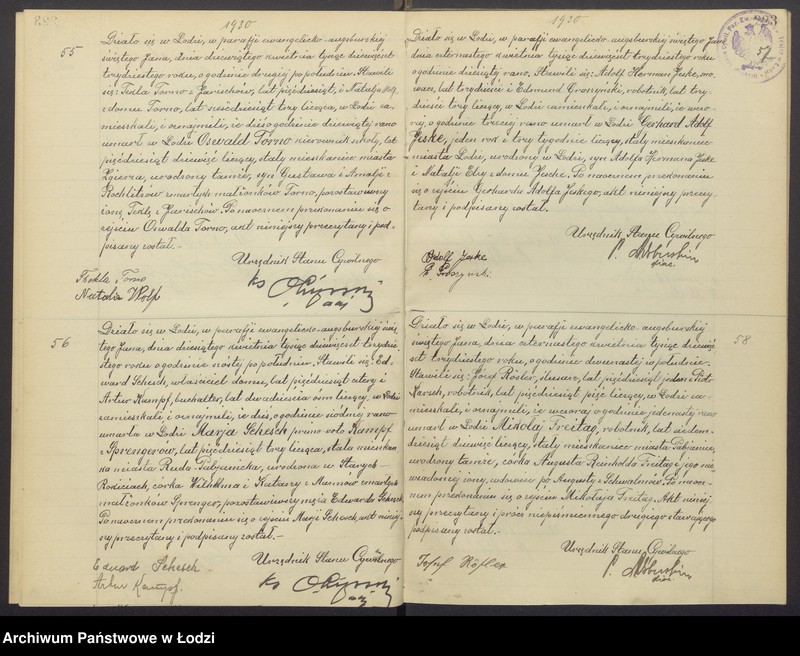 1930
55
Działo się w Łodzi, w parafji ewangelicko-augsburskiej
świętego Jana, dnia dziewiątego kwietnia tysiąc dziewięćset
trzydziestego roku, o godzinie drugiej po południu. Stawili
się: Tekla Torno z Jarischów, lat pięćdziesiąt, i Natalja Wolf
z domu Torno, lat sześćdziesiąt trzy licząca, w Łodzi za-
mieszkali, i oznajmili, że dziś o godzinie dziewiątej rano
umarł w Łodzi Oswald Torno kierownik szkoły, lat
pięćdziesiąt dziewięć liczący, stały mieszkaniec miasta
Zgierza, urodzony tamże, syn Gustawa i Amalji z
Rochlitzów zmarłych małżonków Torno, pozostawiwszy
żonę Teklę z Jarischów. Po naocznem przekonaniu się o
zejściu Oswalda Torno, akt niniejszy przeczytany i pod-
pisany został.-
Urzędnik Stanu Cywilnego
Thekla Torno
Natalia Wolf
ks
56
Działo się w Łodzi, w parafji ewangelicko-augsburskiej świę
tego Jana, dnia dziesiątego kwietnia tysiąc dziewięćset trzydzie
stego roku o godzinie szóstej po południu. Stawili się: Ed-
ward Schesch, właściciel domu, lat pięćdziesiąt cztery i
Artur Kampf, buchalter, lat dwadzieścia ośm liczący, w Łodzi
zamieszkali i oznajmili, że dziś, o godzinie siódmej rano
umarła w Łodzi Marja Schesch primo voto Kampf
z Sprengerów, lat pięćdziesiąt trzy licząca, stała mieszkan
ka miasta Ruda Pabjanicka, urodzona w Starych-
Rokiciach, córka Wilhelma i Kutarzy z Mannów zmarłych
małżonków Sprenger, pozostawiwszy męża Edwarda Schesch.
Po naocznem przekonaniu się o zejściu Marji Schesch, akt niniej
szy przeczytany i podpisany został.-
Urzędnik Stanu Cywilnego
Eduard Schesch
Artur Kampf.
ks
1930
57
Działo się w Łodzi, w parafji ewangelicko-augsburskiej świętego Jana
dnia czternastego kwietnia tysiąc dziewięćset trzydziestego roku
o godzinie dziesiątej rano. Stawili się: Adolf Herman Jeske, mu-
larz, lat trzydzieści i Edmund robotnik, lat trzy-
dzieści trzy liczący, w Łodzi zamieszkali, i oznajmili, że wczo-
raj, o godzinie trzeciej rano umarł w Łodzi Gerhard Adolf
Jeske, jeden rok i trzy tygodnie liczący, stały mieszkaniec
miasta Łodzi, urodzony w Łodzi, syn Adolfa Hermana Jeske
i Natalji Elzy z domu Jesche. Po naocznem przekonaniu
się o zejściu Gerharda Adolfa Jeskego, akt niniejszy przeczy-
tany i podpisany został.
Urzędnik Stanu Cywilnego
Adolf Jeske
58
Działo się w Łodzi, w parafji ewangelicko-augsburskiej
świętego Jana, dnia czternastego kwietnia tysiąc dziewięć
set trzydziestego roku, o godzinie dwunastej w południe.
Stawili się: Józef Rösler, ślusarz, lat pięćdziesiąt jeden i
robotnik, lat pięćdziesiąt pięć liczący, w Łodzi za-
mieszkali, i oznajmili, że wczoraj o godzinie jedenastej rano
umarł w Łodzi Mikołaj Freitag, robotnik, lat siedem-
dziesiąt dziewięć liczący, stały mieszkaniec miasta Pabjanic,
urodzony tamże, córka Augusta Reinholda Freitag i jego nie
wiadomej żony, wdowiec po Auguście z Schwalmów. Po naocz-
nem przekonaniu się o zejściu Mikołaja Freitag. Akt niniej
szy przeczytany i prócz niepiśmiennego drugiego stawającego
podpisany został.
Urzędnik Stanu Cywilnego
Josef Rösler
Archiwum Państwowe w Łodzi